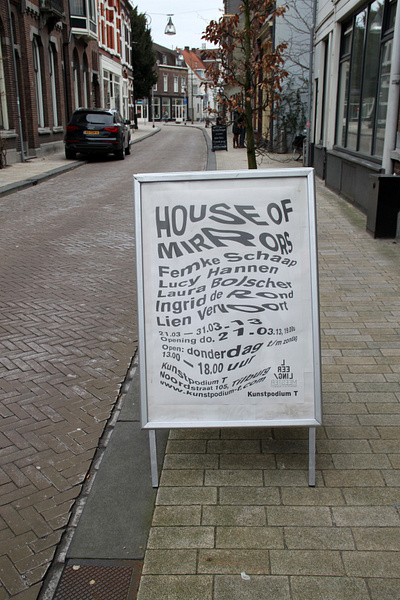 HOUSE OF
MIRRORS
Femke Schaap
Lucy Hannen
Laura Bolscher
Ingrid de Rond
Lien Ver Dort
21.03 – 31.03-13
Opening do. 21.03.13, 19.00u
Open: donderdag t/m zondag
13.00 - 18.00 uur
Kunstpodium T
Noordstraat 105, Tilburg
www.kunstpodium-t.com
Kunstpodium T